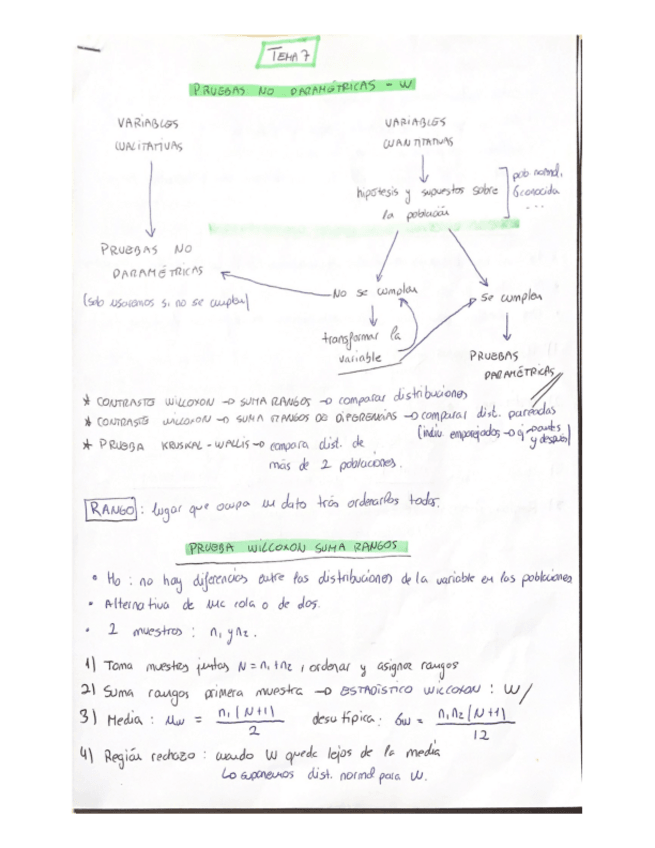 TEMA 7
PRUEBAS NO PARAMÉTRICAS - W
VARIABLES
CUALITATIVAS
VARIABLES
CUANTITATIVAS
hipótesis y supuestos sobre
la población
pob. normal,
σ conocida
...
PRUEBAS NO
PARAMÉTRICAS
(solo usaremos si no se cumplen)
No se cumplen
Se cumplen
transformar la
variable
PRUEBAS
PARAMÉTRICAS
* CONTRASTE WILCOXON → SUMA RANGOS → comparar distribuciones
* CONTRASTE WILCOXON → SUMA RANGOS DE DIFERENCIAS → comparar dist. pareadas
(indiv. emparejados → ej antes
y después)
* PRUEBA KRUSKAL-WALLIS → compara dist. de
más de 2 poblaciones.
RANGO: lugar que ocupa un dato trás ordenarlos todos.
PRUEBA WILCOXON SUMA RANGOS
• Ho: no hay diferencias entre las distribuciones de la variable en las poblaciones
• Alternativa de una cola o de dos.
• 2 muestras: n₁ y n₂.
1) Toma muestras juntas N = n₁ + n₂, ordenar y asignar rangos
2) Suma rangos primera muestra → ESTADÍSTICO WILCOXON: W
3) Media: μw = n₁(N+1)/2 desv típica: σw = n₁n₂(N+1)/12
4) Región rechazo: cuando W quede lejos de la media
Lo suponemos dist. normal para W.